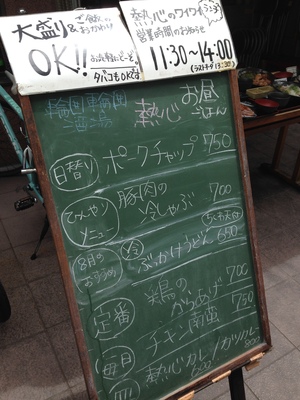 大盛り&
ご飯の
おかわり
OK!!
お気軽にどーぞ。
タバコもOKです
熱心のワイワイ
営業時間のお知らせ
11:30~14:00
(ラストオーダ13:30)
熱心 お昼
ごはん
日替り ポークチャップ 750
ひんやり
メニュー
豚肉の
冷しゃぶ 700
8月の
おすすめ
冷 ぶっかけうどん 650
定番 鶏の
からあげ 700
毎日 チキン南蛮 750
熱心カレー/カツカレー
600 800